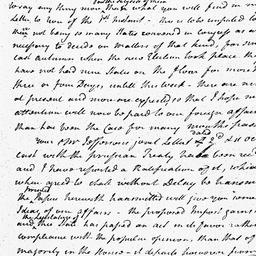 to say any thing more than what you will find in my
Letter to two of the 1st Instant. this is to be imputed to
their not being so many States convened in Congress as are
necessary to decide on matters of that kind, for since
last autumn when the new Election took place there
has not had nine States on the floor for more than
three or four Days, until this week. there are nine
at present and more are expected, so that I hope more
attention will now be paid to our foreign affairs
than has been the Case for many months past
Your & Mr Jeffersons joint Letter dated of 2d & 11 Oct
east with the prussian Treaty has been received
and I have reported a Ratification of it, which
when agreed to shall without Delay be transmitted
the printed Papers herewith transmitted will give you some
Ideas of our affairs. the proposed Impost gains
and the Legislature of this State has passed an act in its favor rather
compliance with the popular opinion, than that of
majority in the House. it departs however from